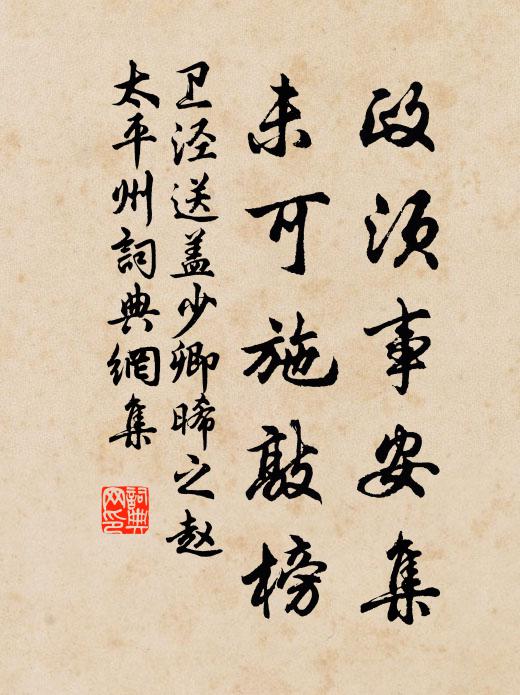 政须事安集
未可施敲榜
卫泾送盖少卿晞之赵
太平州詞典網集
詞典网印